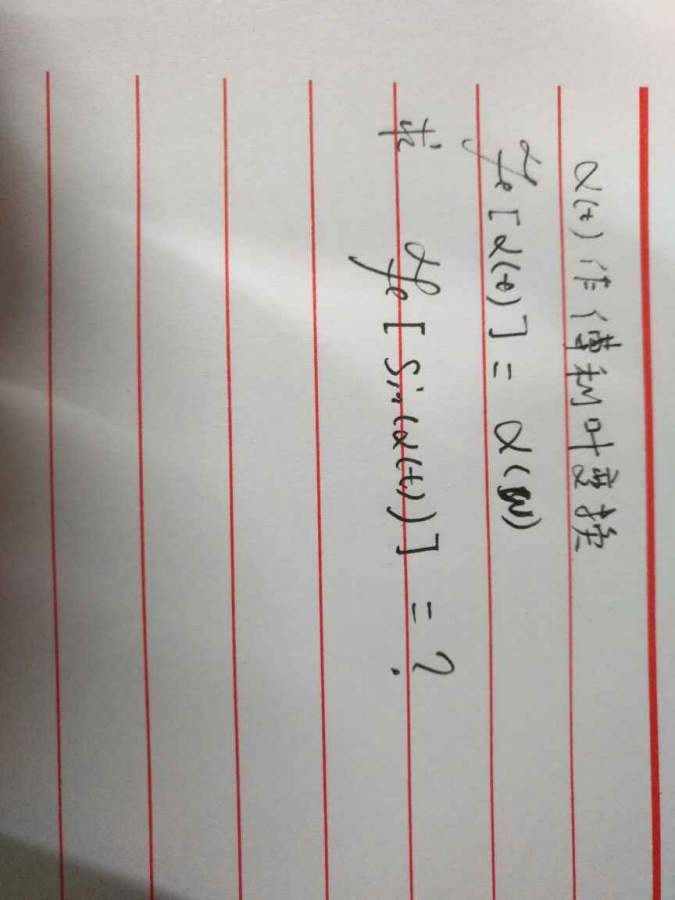 α(t) 作 傅利叶变换
ℱe[α(t)] = α(ω)
求 ℱe[sin(α(t))] = ?